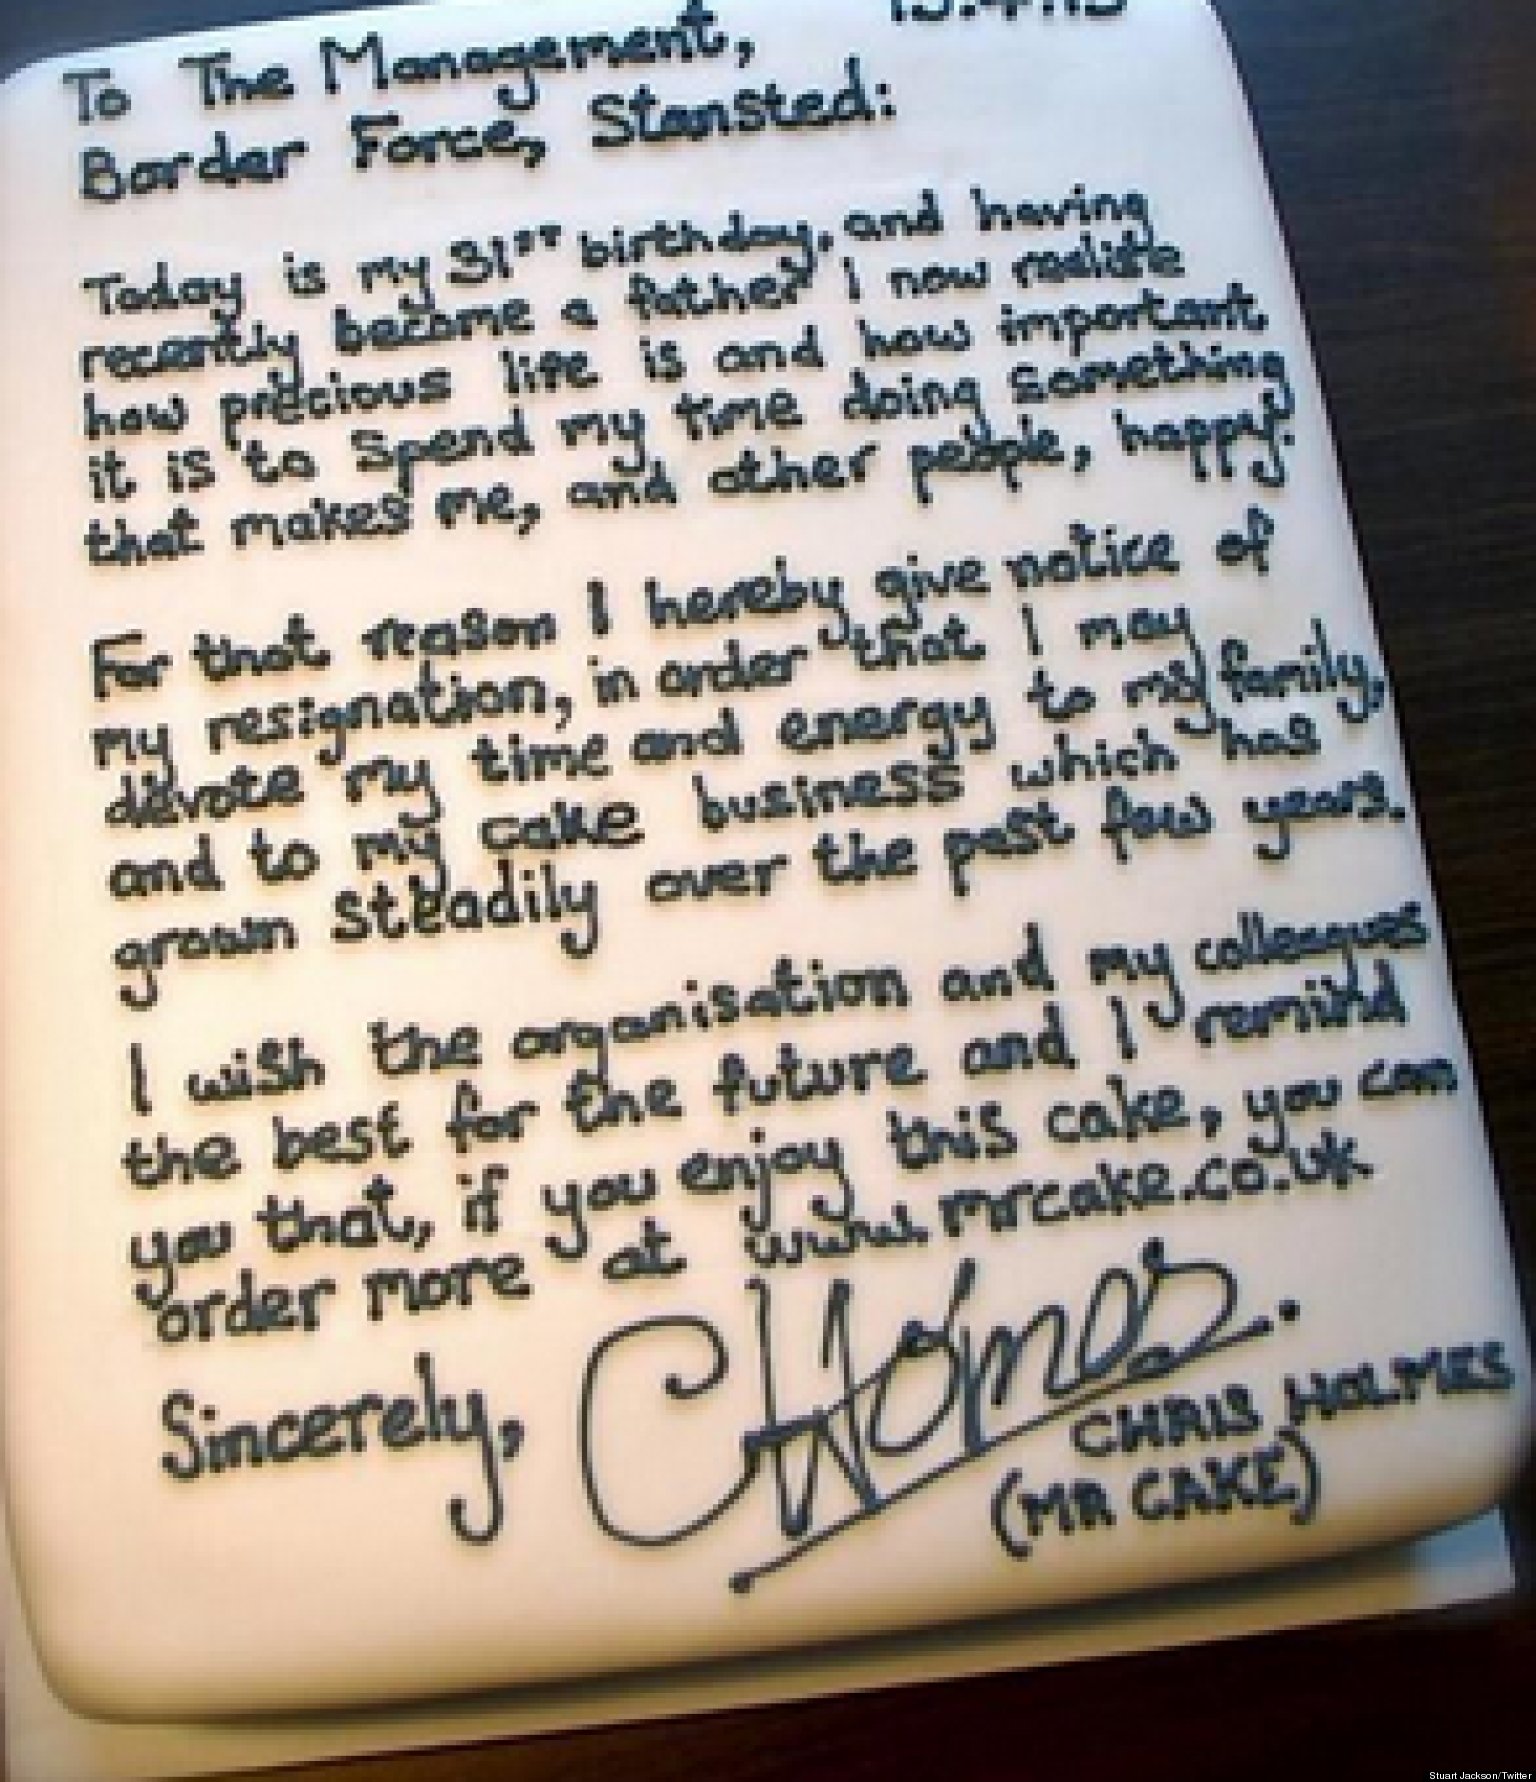 15.4.13
To The Management,
Border Force, Stansted:
Today is my 31st birthday, and having
recently become a father I now realise
how precious life is and how important
it is to spend my time doing something
that makes me, and other people, happy.
For that reason I hereby give notice of
my resignation, in order that I may
devote my time and energy to my family,
and to my cake business which has
grown steadily over the past few years.
I wish the organisation and my colleagues
the best for the future and I remind
you that, if you enjoy this cake, you can
order more at www.mrcake.co.uk
Sincerely, CHolmes.
CHRIS HOLMES
(MR CAKE)
Stuart Jackson/Twitter